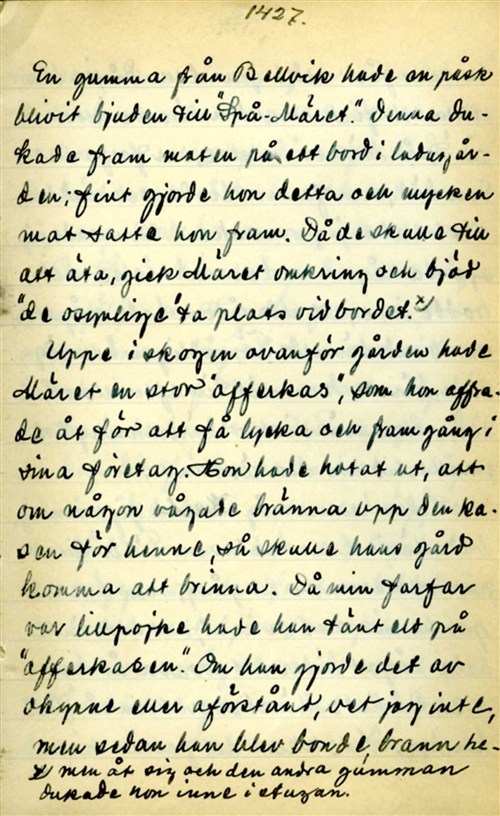 1427.
En gumma från Bellvik hade en påsk
blivit bjuden till "Spå-Märet." Denna du-
kade fram maten på ett bord i ladugår-
den; fint gjorde hon detta och mycken
mat satte hon fram. Då de skulle till
att äta, gick Märet omkring och bjöd
"de osynlige" ta plats vid bordet. x)
Uppe i skogen ovanför gården hade
Märet en stor "offerkas", som hon offra-
de åt för att få lycka och framgång i
sina företag. Hon hade hotat ut, att
om någon vågade bränna upp den ka-
sen för henne, så skulle hans gård
komma att brinna. Då min farfar
var lillpojke hade han tänt eld på
"offerkasen." Om han gjorde det av
okynne eller oförstånd, vet jag inte,
men sedan han blev bonde, brann he-
x) men åt sig och den andra gumman
dukade hon inne i stugan.